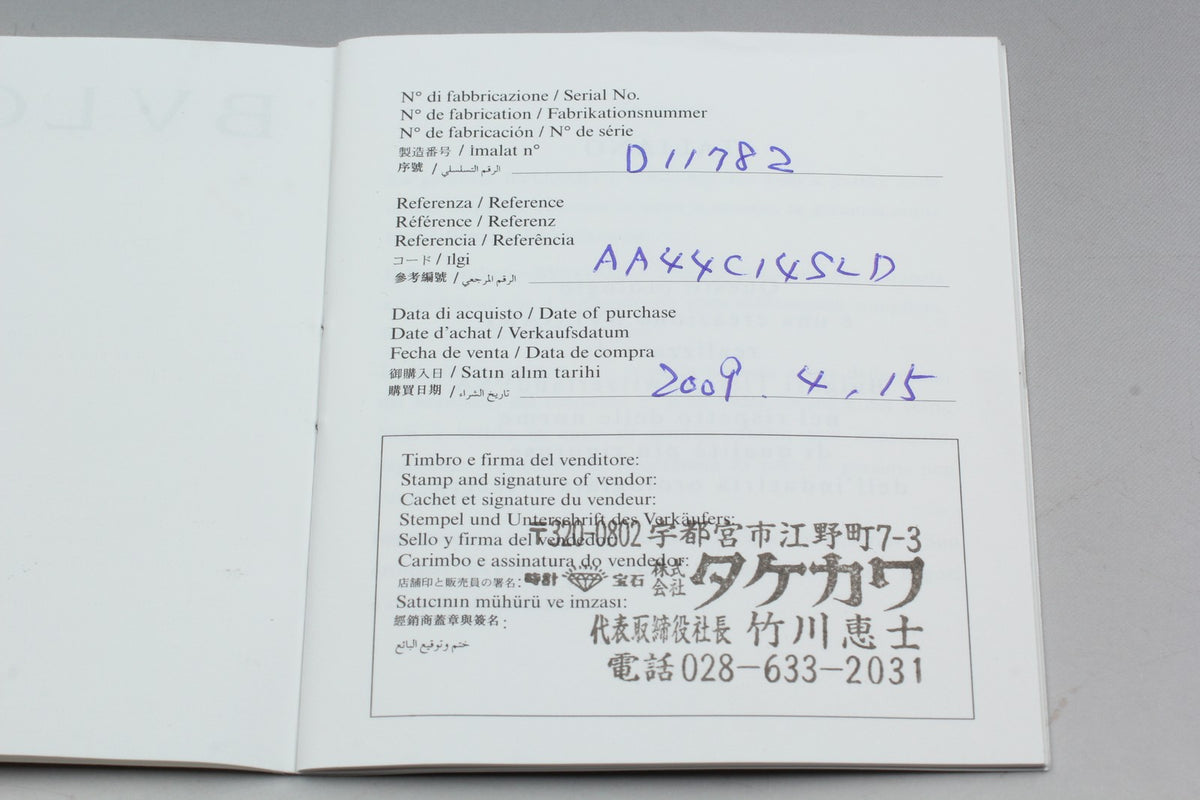 N° di fabbricazione / Serial No.
N° de fabrication / Fabrikationsnummer
N° de fabricación / N° de série
製造番号 / imalat n°
序號 / الرقم التسلسلي D11782
Referenza / Reference
Référence / Referenz
Referencia / Referência
コード / ılgi
參考編號 / الرقم المرجعي AA44C14SLD
Data di acquisto / Date of purchase
Date d'achat / Verkaufsdatum
Fecha de venta / Data de compra
御購入日 / Satın alım tarihi
購買日期 / تاريخ الشراء 2009. 4. 15
Timbro e firma del venditore:
Stamp and signature of vendor:
Cachet et signature du vendeur:
Stempel und Unterschrift des Verkäufers:
〒320-0802 宇都宮市江野町7-3
Sello y firma del vendedor:
Carimbo e assinatura do vendedor:
店舗印と販売員の署名:
時計 宝石 株式会社 タケカワ
Satıcının mühürü ve imzası:
經銷商蓋章與簽名:
代表取締役社長 竹川恵士
ختم وتوقيع البائع
電話028-633-2031